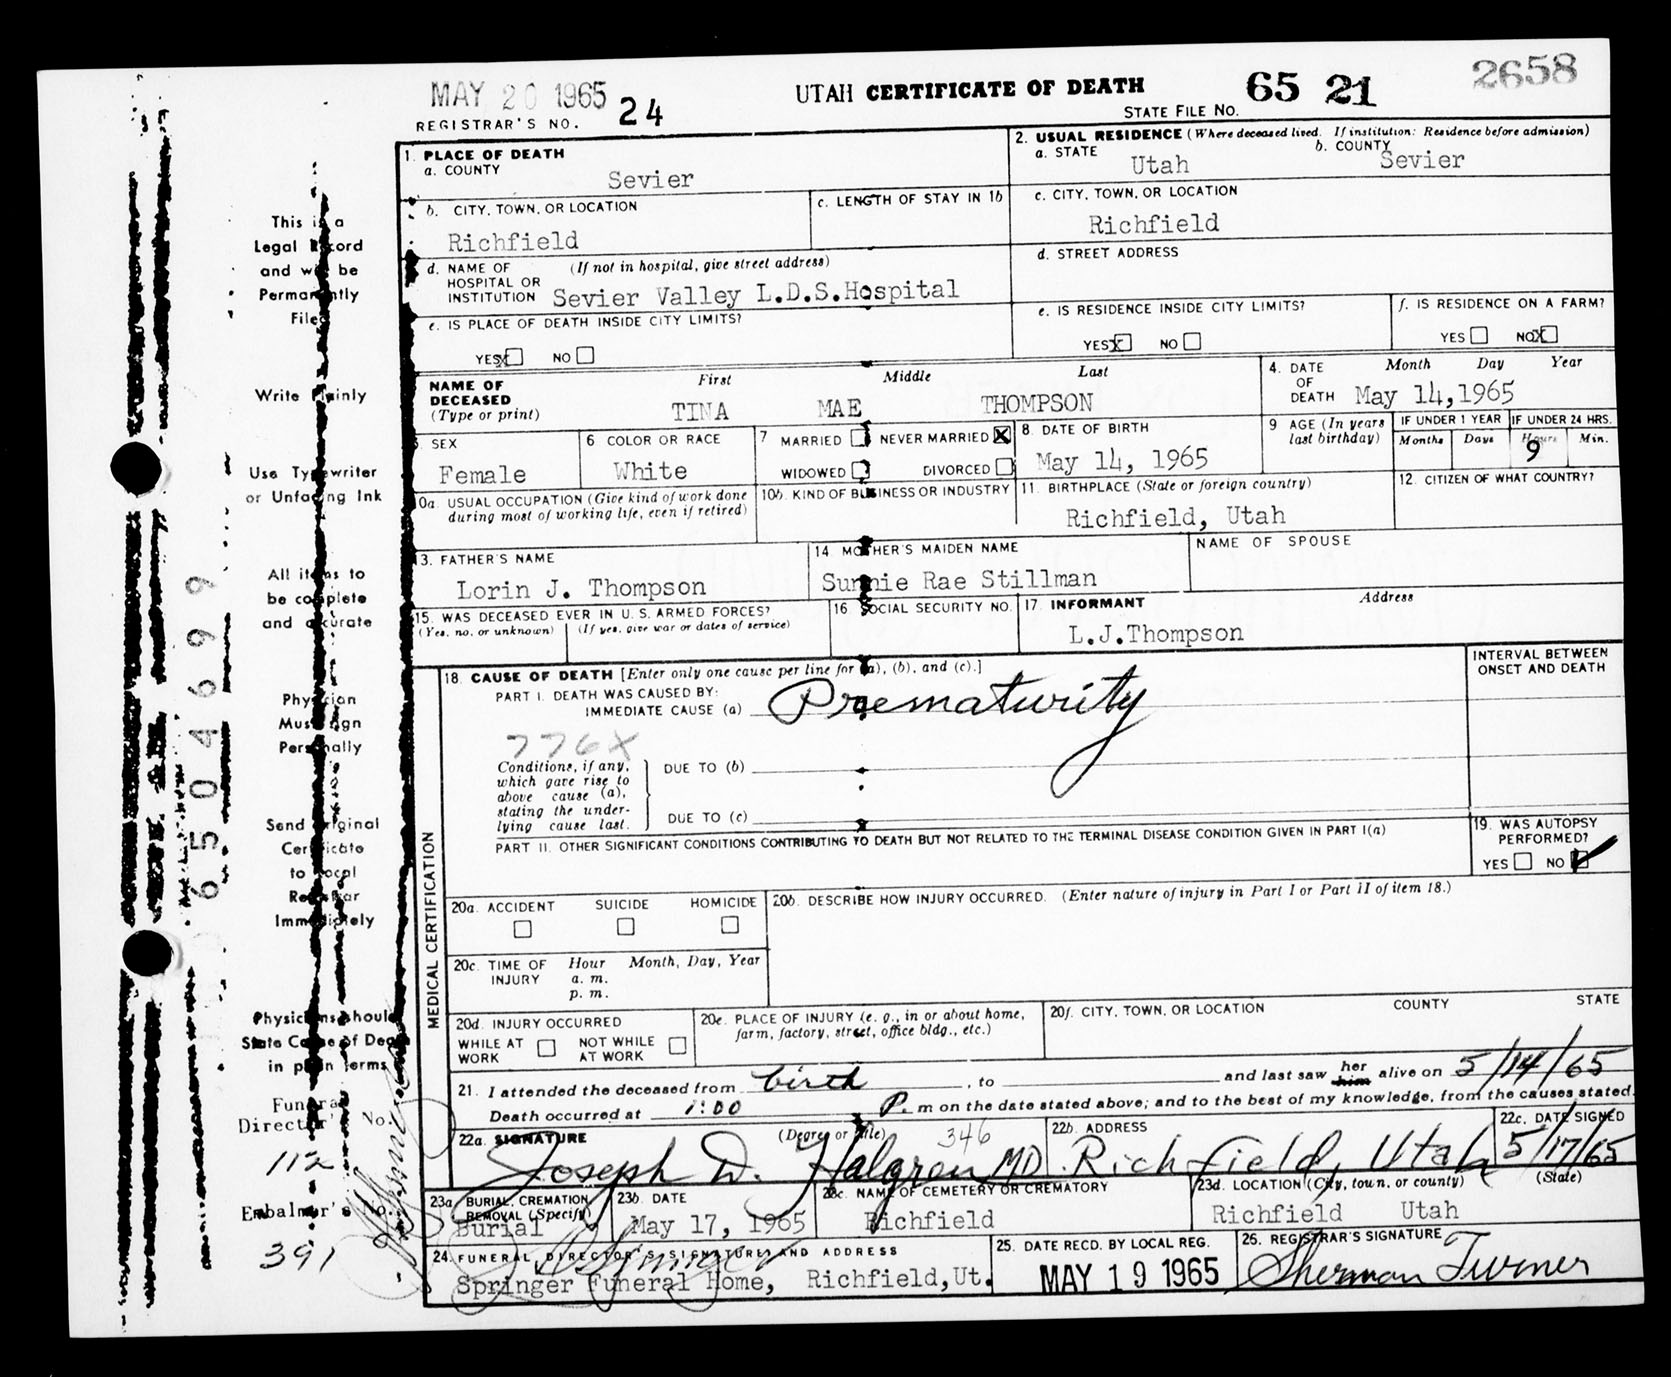 MAY 20 1965
REGISTRAR'S NO. 24
UTAH CERTIFICATE OF DEATH
STATE FILE NO. 65 21
2658
This is a
Legal Record
and will be
Permanently
Filed
Write Plainly
Use Typewriter
or Unfading Ink
All items to
be complete
and accurate
Physician
Must Sign
Personally
Send Original
Certificate
to Local
Registrar
Immediately
Physicians should
State Cause of Death
in plain terms
Funeral
Director's No.
112
Embalmer's No.
391
6504699
1. PLACE OF DEATH
a. COUNTY
Sevier
2. USUAL RESIDENCE (Where deceased lived. If institution: Residence before admission)
a. STATE Utah
b. COUNTY Sevier
b. CITY, TOWN, OR LOCATION
Richfield
c. LENGTH OF STAY IN 1b
c. CITY, TOWN, OR LOCATION
Richfield
d. NAME OF HOSPITAL OR INSTITUTION (If not in hospital, give street address)
Sevier Valley L.D.S.Hospital
d. STREET ADDRESS
e. IS PLACE OF DEATH INSIDE CITY LIMITS?
YES X NO
e. IS RESIDENCE INSIDE CITY LIMITS?
YES X NO
f. IS RESIDENCE ON A FARM?
YES NO X
NAME OF DECEASED (Type or print)
First Middle Last
TINA MAE THOMPSON
4. DATE OF DEATH
Month Day Year
May 14,1965
5. SEX
Female
6 COLOR OR RACE
White
7 MARRIED NEVER MARRIED X
WIDOWED DIVORCED
8. DATE OF BIRTH
May 14, 1965
9 AGE (In years last birthday)
IF UNDER 1 YEAR
Months Days
IF UNDER 24 HRS.
Hours Min.
9
10a. USUAL OCCUPATION (Give kind of work done during most of working life, even if retired)
10b. KIND OF BUSINESS OR INDUSTRY
11. BIRTHPLACE (State or foreign country)
Richfield, Utah
12. CITIZEN OF WHAT COUNTRY?
13. FATHER'S NAME
Lorin J. Thompson
14 MOTHER'S MAIDEN NAME
Sunnie Rae Stillman
NAME OF SPOUSE
15. WAS DECEASED EVER IN U.S. ARMED FORCES?
(Yes, no, or unknown) (If yes, give war or dates of service)
16 SOCIAL SECURITY NO.
17. INFORMANT Address
L.J.Thompson
MEDICAL CERTIFICATION
18. CAUSE OF DEATH [Enter only one cause per line for (a), (b), and (c).]
INTERVAL BETWEEN ONSET AND DEATH
PART I. DEATH WAS CAUSED BY:
IMMEDIATE CAUSE (a) Prematurity
776X
Conditions, if any, which gave rise to above cause (a), stating the underlying cause last.
DUE TO (b)
DUE TO (c)
PART II. OTHER SIGNIFICANT CONDITIONS CONTRIBUTING TO DEATH BUT NOT RELATED TO THE TERMINAL DISEASE CONDITION GIVEN IN PART I(a)
19. WAS AUTOPSY PERFORMED?
YES NO ✓
20a. ACCIDENT SUICIDE HOMICIDE
20b. DESCRIBE HOW INJURY OCCURRED. (Enter nature of injury in Part I or Part II of item 18.)
20c. TIME OF INJURY
Hour Month, Day, Year
a. m.
p. m.
20d. INJURY OCCURRED
WHILE AT WORK NOT WHILE AT WORK
20e. PLACE OF INJURY (e. g., in or about home, farm, factory, street, office bldg., etc.)
20f. CITY, TOWN, OR LOCATION COUNTY STATE
21. I attended the deceased from birth, to and last saw her him alive on 5/14/65
Death occurred at 1:00 P. m on the date stated above; and to the best of my knowledge, from the causes stated.
22a. SIGNATURE (Degree or title) 346
Joseph D. Halgren MD.
22b. ADDRESS
Richfield, Utah
22c. DATE SIGNED
5/17/65
23a BURIAL, CREMATION REMOVAL (Specify)
Burial
23b. DATE
May 17, 1965
23c. NAME OF CEMETERY OR CREMATORY
Richfield
23d. LOCATION (City, town, or county) (State)
Richfield Utah
24. FUNERAL DIRECTOR'S SIGNATURE AND ADDRESS
Springer Funeral Home, Richfield,Ut.
25. DATE RECD. BY LOCAL REG.
MAY 19 1965
26. REGISTRAR'S SIGNATURE
Sherman Turner